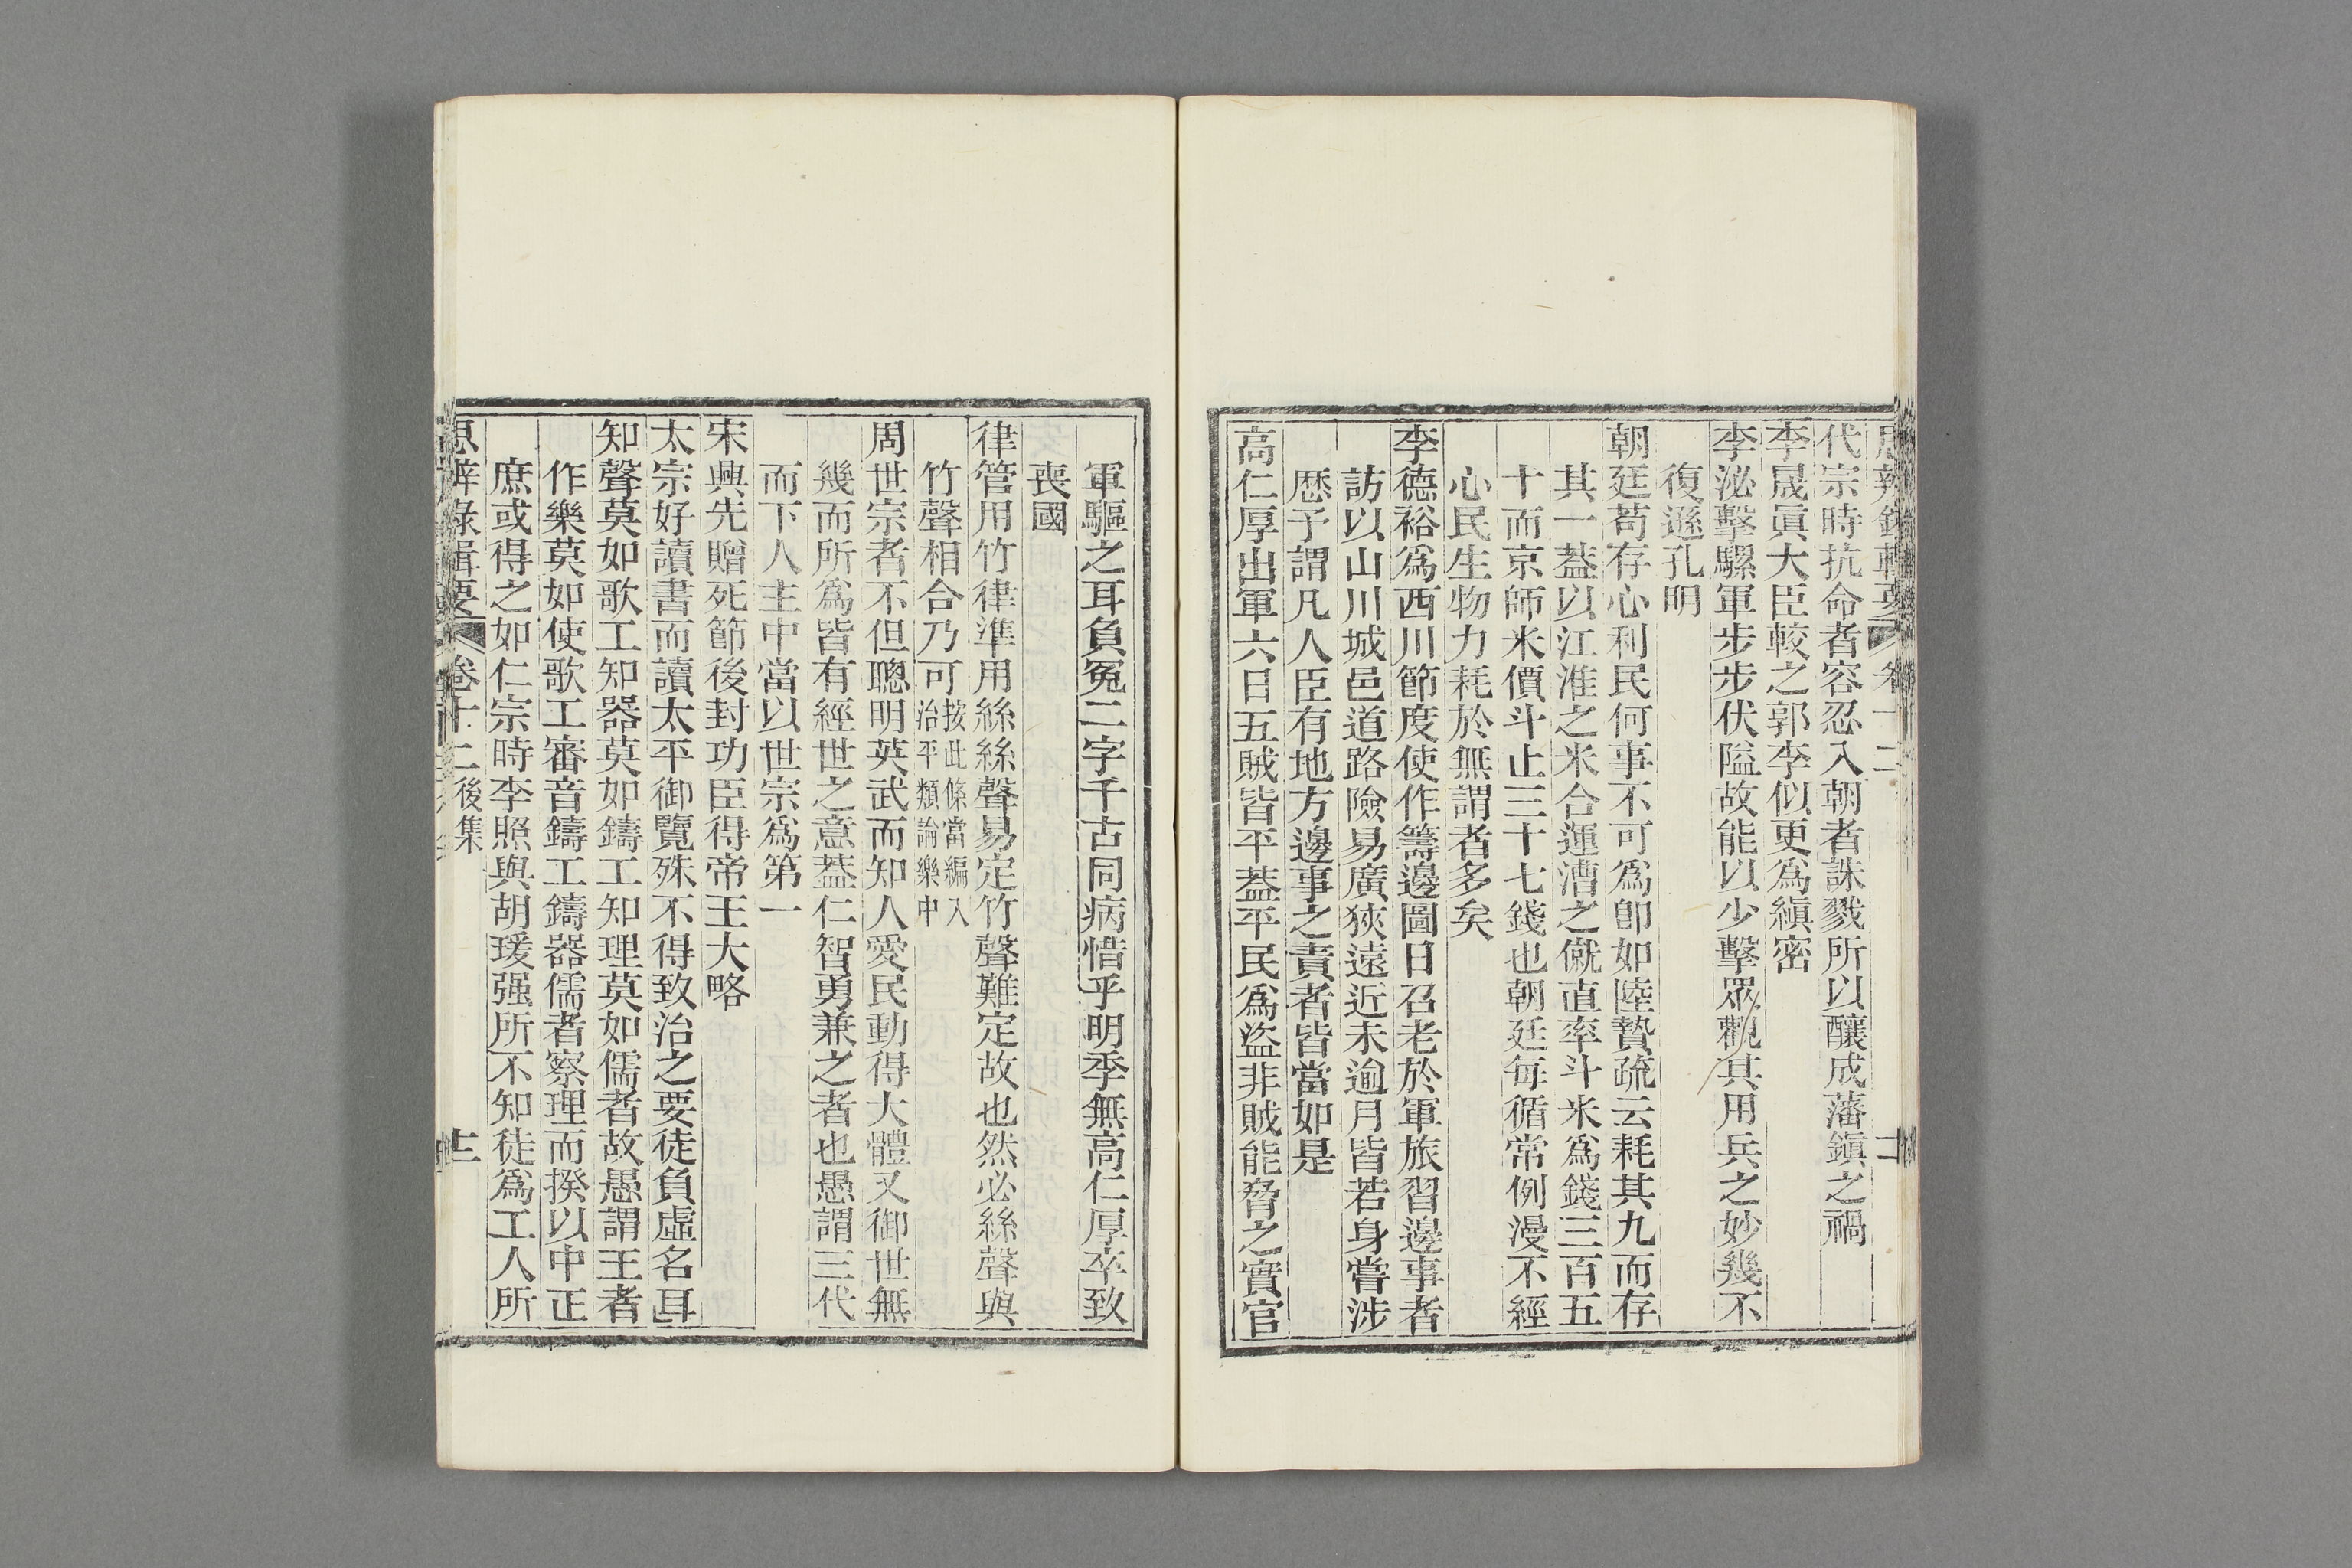 思辨錄輯要 卷十二
代宗時抗命者容忍入朝者誅戮所以釀成藩鎭之禍
李晟眞大臣較之郭李似更爲縝密
李泌擊騾軍步步伏隘故能以少擊眾觀其用兵之妙幾不
復遜孔明
朝廷苟存心利民何事不可爲卽如陸贄疏云耗其九而存
其一葢以江淮之米合運漕之僦直率斗米爲錢三百五
十而京師米價斗止三十七錢也朝廷每循常例漫不經
心民生物力耗於無謂者多矣
李德裕爲西川節度使作籌邊圖日召老於軍旅習邊事者
訪以山川城邑道路險易廣狹遠近未逾月皆若身嘗涉
歷予謂凡人臣有地方邊事之責者皆當如是
高仁厚出軍六日五賊皆平葢平民爲盜非賊能脅之實官
軍驅之耳負冤二字千古同病惜乎明季無高仁厚卒致
喪國
律管用竹律準用絲絲聲易定竹聲難定故也然必絲聲與
竹聲相合乃可按此條當編入治平類論樂中
周世宗者不但聰明英武而知人愛民動得大體又御世無
幾而所爲皆有經世之意葢仁智勇兼之者也愚謂三代
而下人主中當以世宗爲第一
宋興先贈死節後封功臣得帝王大略
太宗好讀書而讀太平御覽殊不得致治之要徒負虛名耳
知聲莫如歌工知器莫如鑄工知理莫如儒者故愚謂王者
作樂莫如使歌工審音鑄工鑄器儒者察理而揆以中正
庶或得之如仁宗時李照與胡瑗强所不知徒爲工人所
思辨錄輯要 卷十二後集 十二